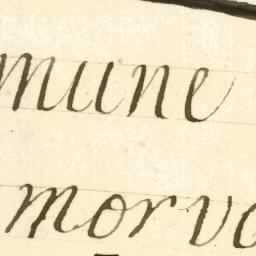 mune
morvo